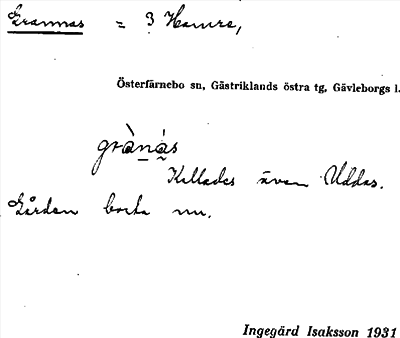 Grannas = 3 Hamre,
Österfärnebo sn, Gästriklands östra tg, Gävleborgs l.
grànás
Kallades även Uddas.
Gården borta nu.
Ingegärd Isaksson 1931